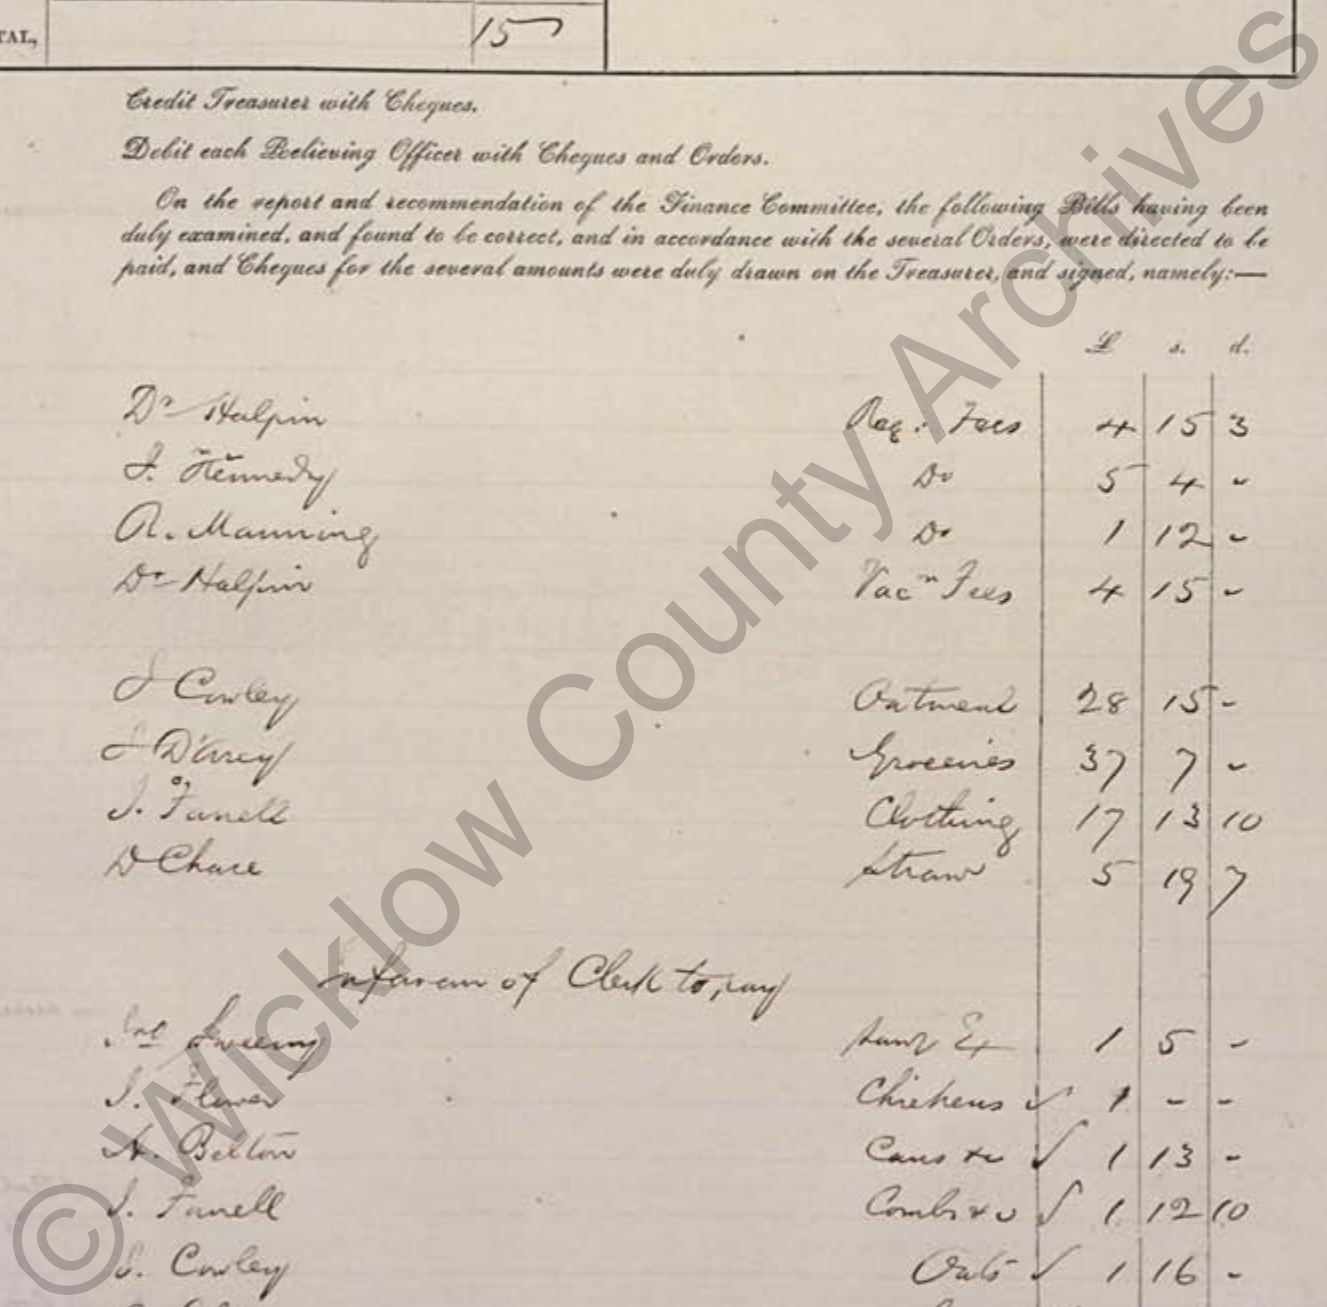 TAL, 15
Credit Treasurer with Cheques.
Debit each Relieving Officer with Cheques and Orders.
On the report and recommendation of the Finance Committee, the following Bills having been
duly examined, and found to be correct, and in accordance with the several Orders, were directed to be
paid, and Cheques for the several amounts were duly drawn on the Treasurer, and signed, namely:—
£ s. d.
Dr Halpin Reg. Fees 4 15 3
J. Kennedy Do 5 4 -
R. Manning Do 1 12 -
Dr Halpin Vacn Fees 4 15 -
J Cowley Oatmeal 28 15 -
J D'Arcy Groceries 37 7 -
J. Farrell Clothing 17 13 10
D Chace Straw 5 19 7
In favour of Clerk to pay
Sweeny 1 5 -
J. Flower Chickens ✓ 1 - -
A. Belton Cans &c ✓ 1 13 -
J. Farrell Combs &c ✓ 1 12 10
S. Cowley Oats ✓ 1 16 -
© Wicklow County Archives